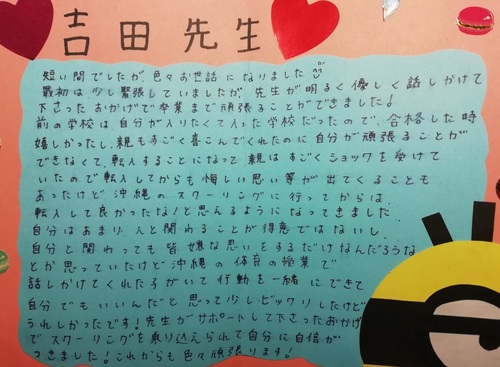 吉田先生
短い間でしたが色々お世話になりました
最初は少し緊張していましたが、先生が明るく優しく話しかけて
下さったおかげで卒業まで頑張ることができました!
前の学校は自分が入りたくて入った学校だったので、合格した時
嬉しかったし、親もすごく喜こんでくれたのに自分が頑張ることが
できなくて、転入することになって親はすごくショックを受けて
いたので転入してからも悔しい思い等が出てくることも
あったけど沖縄のスクーリングに行ってからは、
転入して良かったな!と思えるようになってきました。
自分はあまり人と関わることが得意ではないし、
自分と関わっても皆嫌な思いをするだけなんだろうな
とか思っていたけど沖縄の体育の授業で
話しかけてくれた子がいて行動を一緒にできて
自分でもいいんだと思って少しビックリしたけど
うれしかったです!先生がサポートして下さったおかげ
でスクーリングを乗り込えられて自分に自信が
つきました!これからも色々頑張ります!